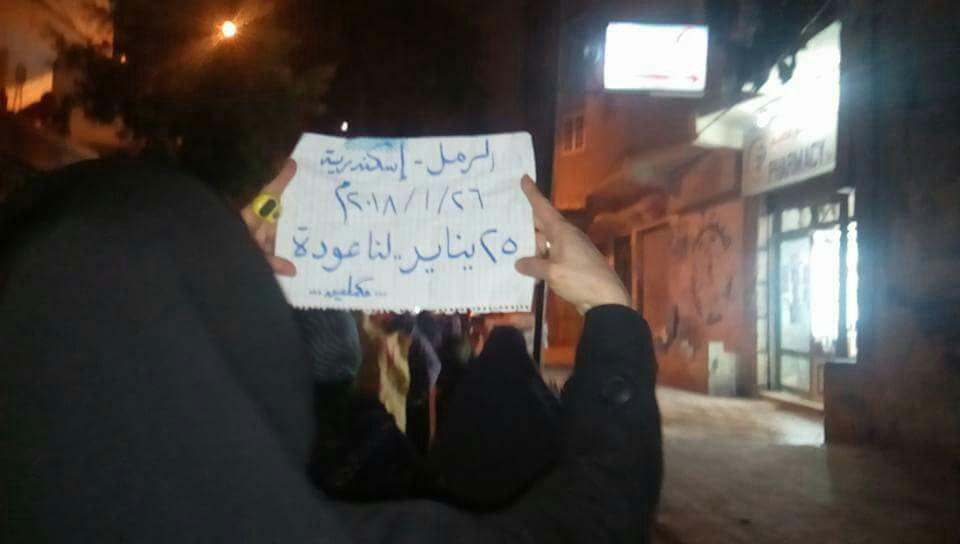 الرمل - إسكندرية
٢٦/١/٢٠١٨م
٢٥ يناير.. لنا عودة
...مكملين...
PHARMACY